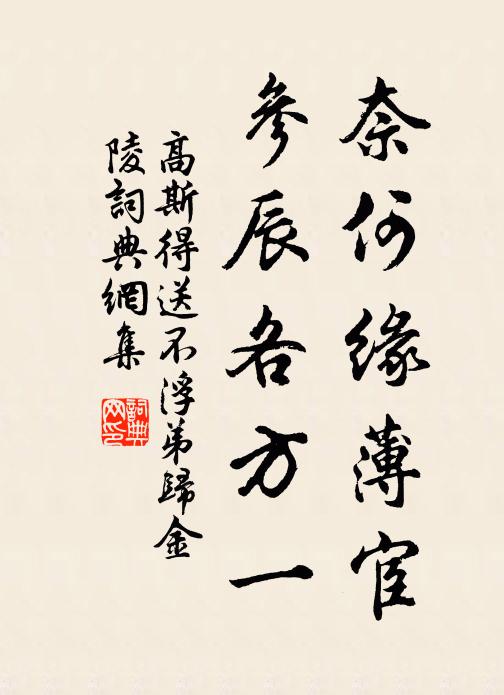 奈何緣薄宦
參辰各方一
高斯得送不浮弟歸金
陵詞典網集
詞典
网印